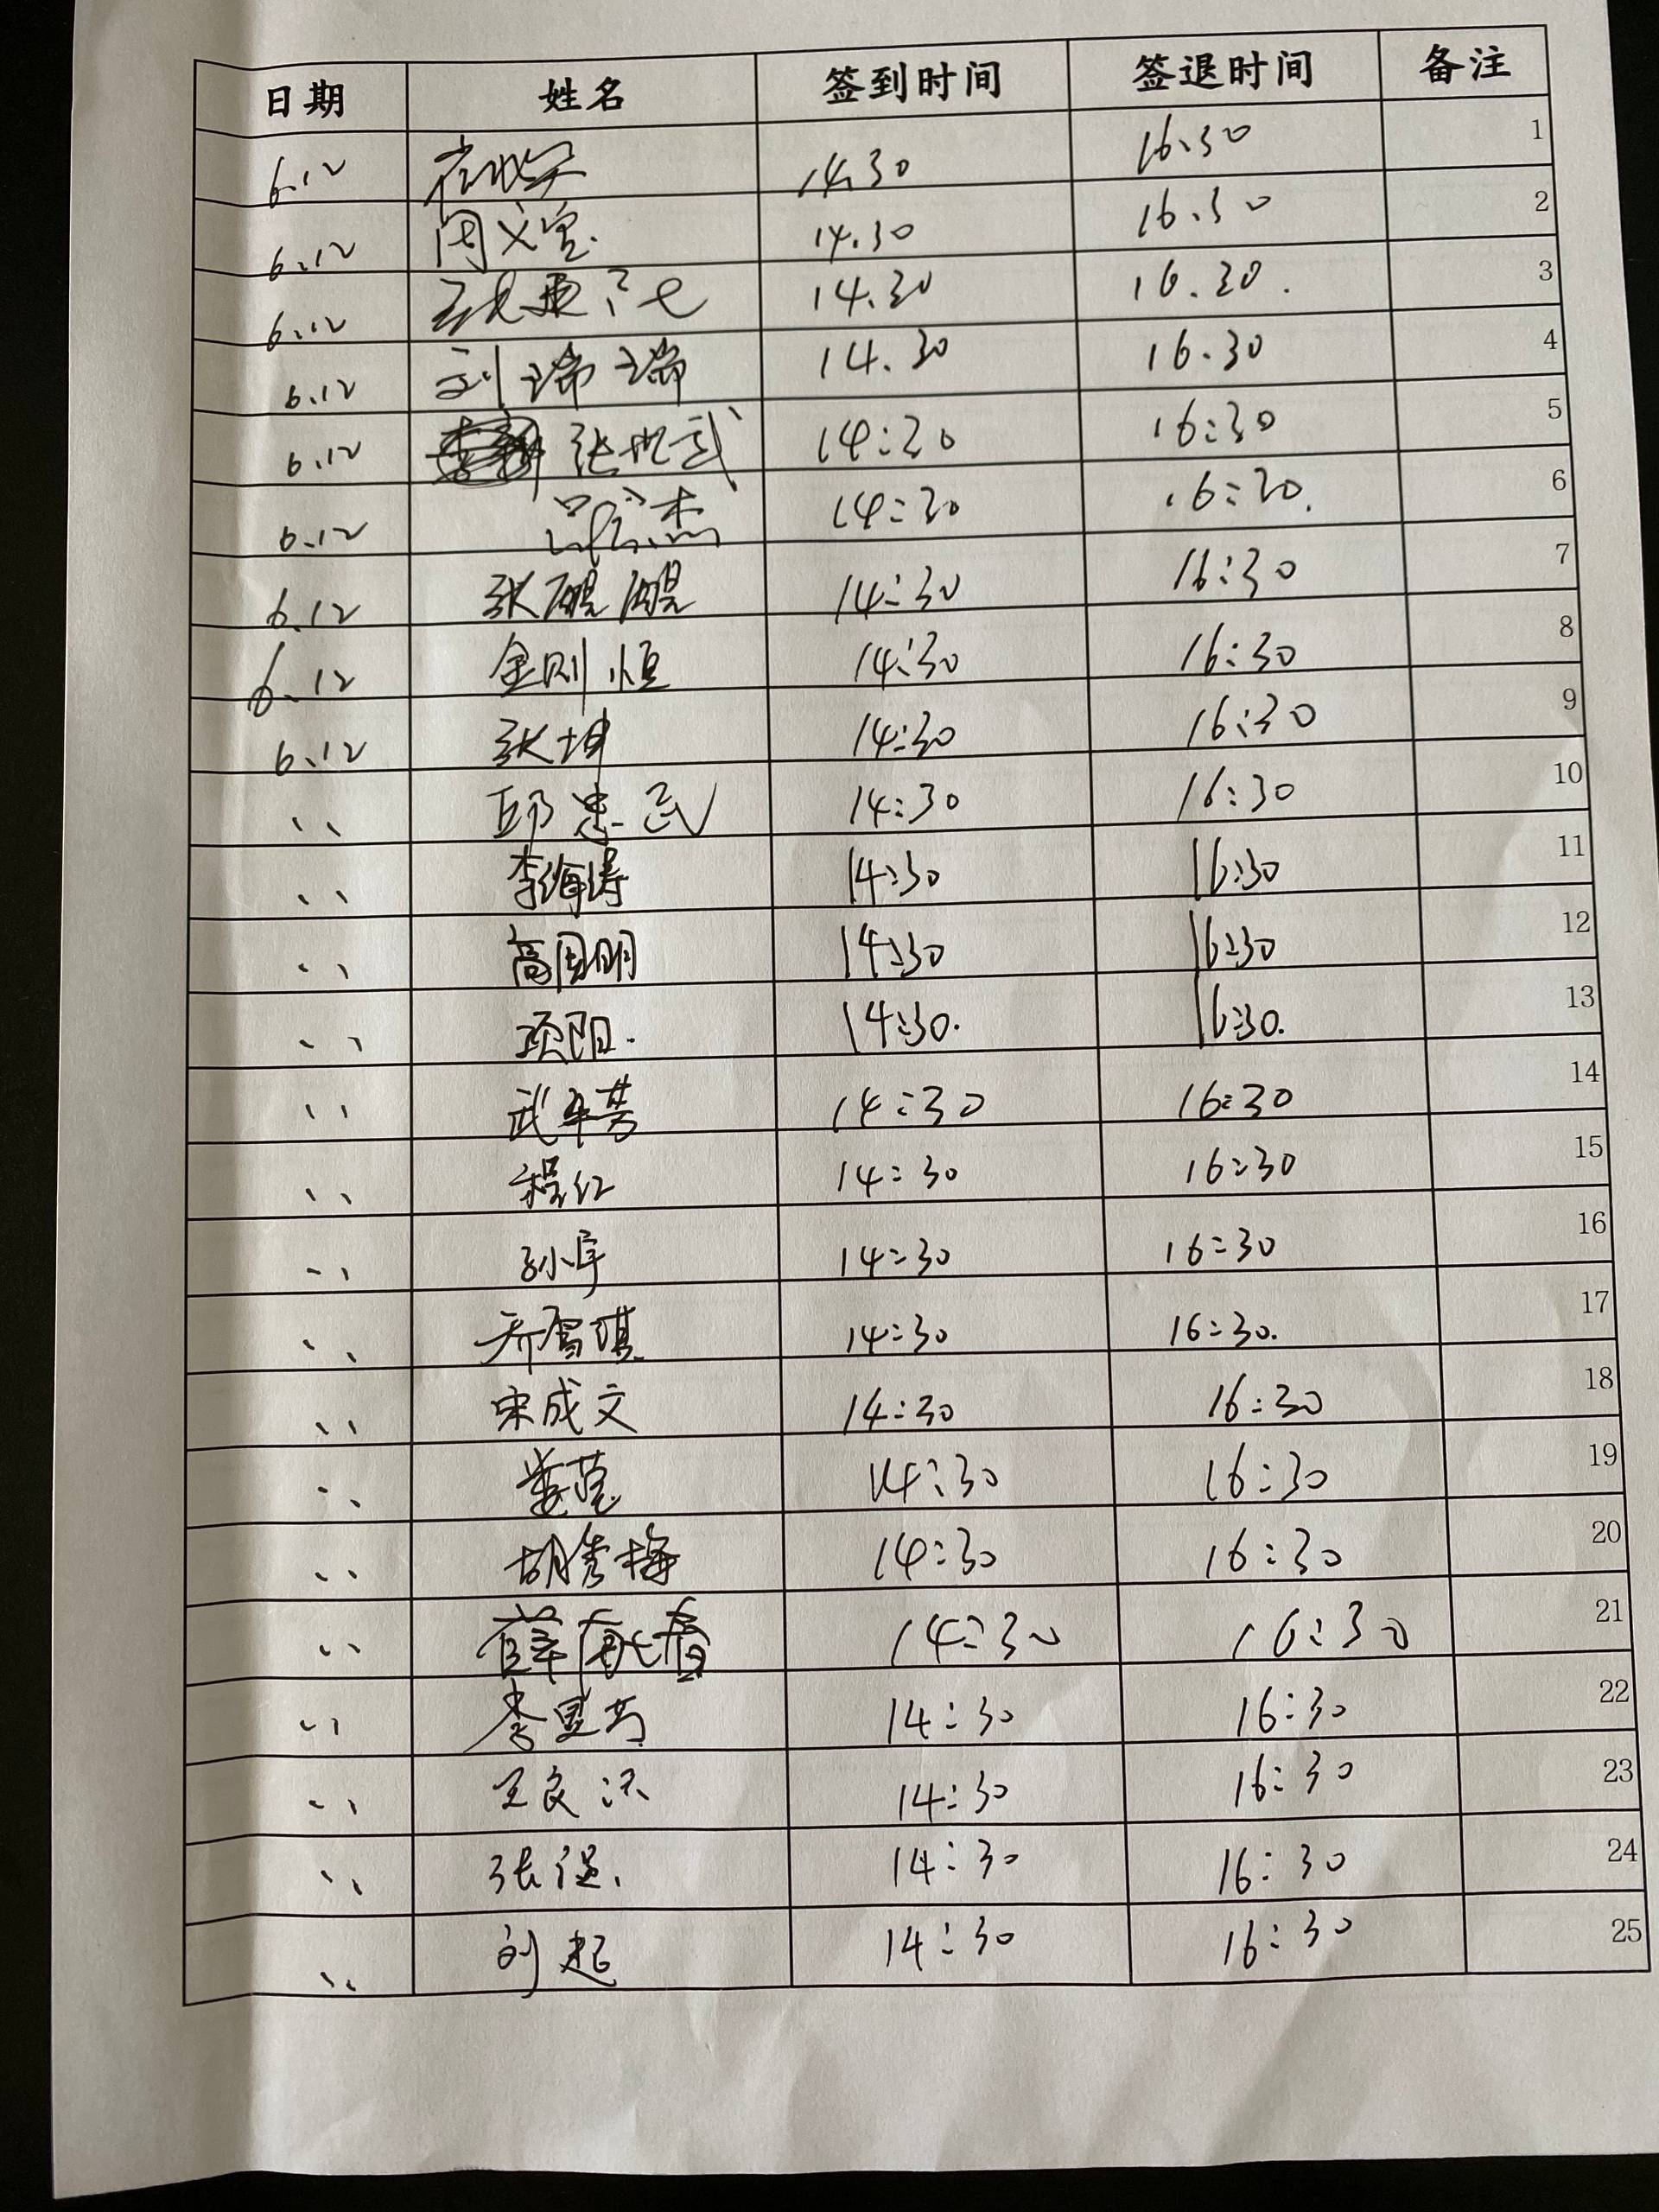 日期 姓名 签到时间 签退时间 备注
6.12 14.30 16.30 1
6.12 周义宝. 14.30 16.30 2
6.12 14.30 16.30. 3
6.12 刘瑞瑞 14.30 16.30 4
6.12 张世武 14:30 16:30 5
6.12 14:30 16:30. 6
6.12 张鹍鹍 14:30 16:30 7
6.12 金刚恒 14:30 16:30 8
6.12 张坤 14:30 16:30 9
、、 邱忠武 14:30 16:30 10
、、 李海涛 14:30 16:30 11
、、 高国明 14:30 16:30 12
、、 项阳. 14:30. 16:30. 13
、、 武平芳 14:30 16:30 14
、、 程红 14:30 16:30 15
、、 孙宇 14:30 16:30 16
、、 乔富琪 14:30 16:30. 17
、、 宋成文 14:30 16:30 18
、、 姜莹 14:30 16:30 19
、、 胡秀梅 14:30 16:30 20
、、 薛春 14:30 16:30 21
、、 14:30 16:30 22
、、 王良 14:30 16:30 23
、、 张 14:30 16:30 24
、、 刘起 14:30 16:30 25